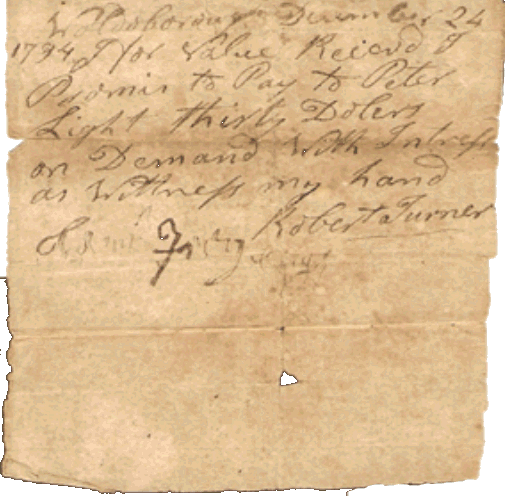 Waldoborough December 24
1794 I for Value Reicevd I
Promis to Pay to Peter
Light thirty Dolers
on Demand With Intress
as Wittness my hand
Robert Turner